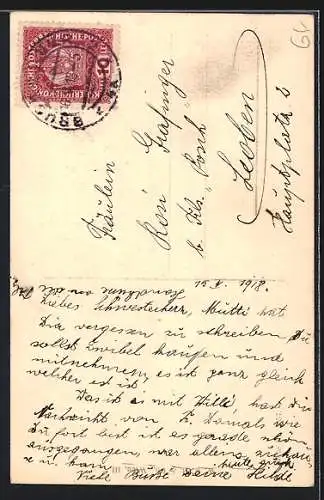 Fräulein
Roni Grafinger
b. Frl. Posch
Leoben
Hauptplatz 2
15 V. 1918.
Liebes Schwesterherz, Mutti hat
Dir vergessen zu schreiben Du
sollst Zwibel kaufen und
mitnehmen, es ist ganz gleich
welcher es ist.
Das ist es mit Zilli, hast Du
Nachricht von Damals wie
Du fort bist ist es gerade schön
ausgegangen, war allens zuhaus
u kam
Viele Bussi Deine Hilde